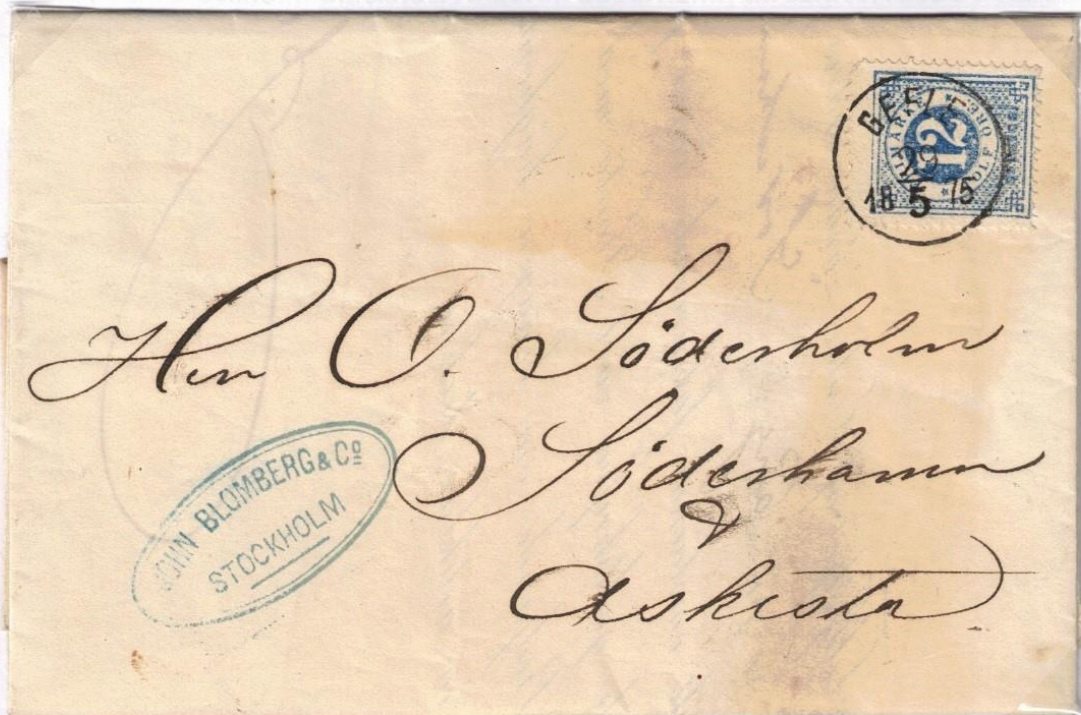 GEFLE
29
18 5 75
12
TOLF ÖRE
Herr O. Söderholm
Söderhamn
&
Askesta
JOHN BLOMBERG & Co
STOCKHOLM